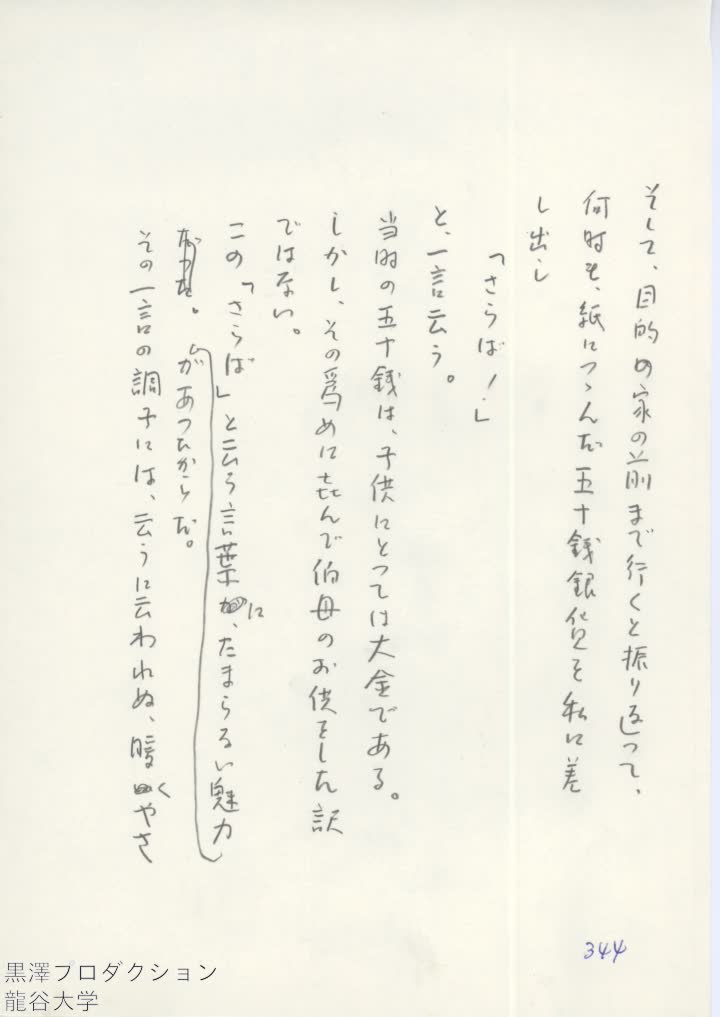 そして、目的の家の前まで行くと振り返って、
何時も、紙につゝんだ五十銭銀貨を私に差
し出し
「さらば！」
と、一言云う。
当時の五十銭は、子供にとっては大金である。
しかし、その為めに喜んで伯母のお供をした訳
ではない。
この「さらば」と云う言葉に、たまらない魅力
があつたからだ。
その一言の調子には、云うに云われぬ、暖くやさ
344
黒澤プロダクション
龍谷大学